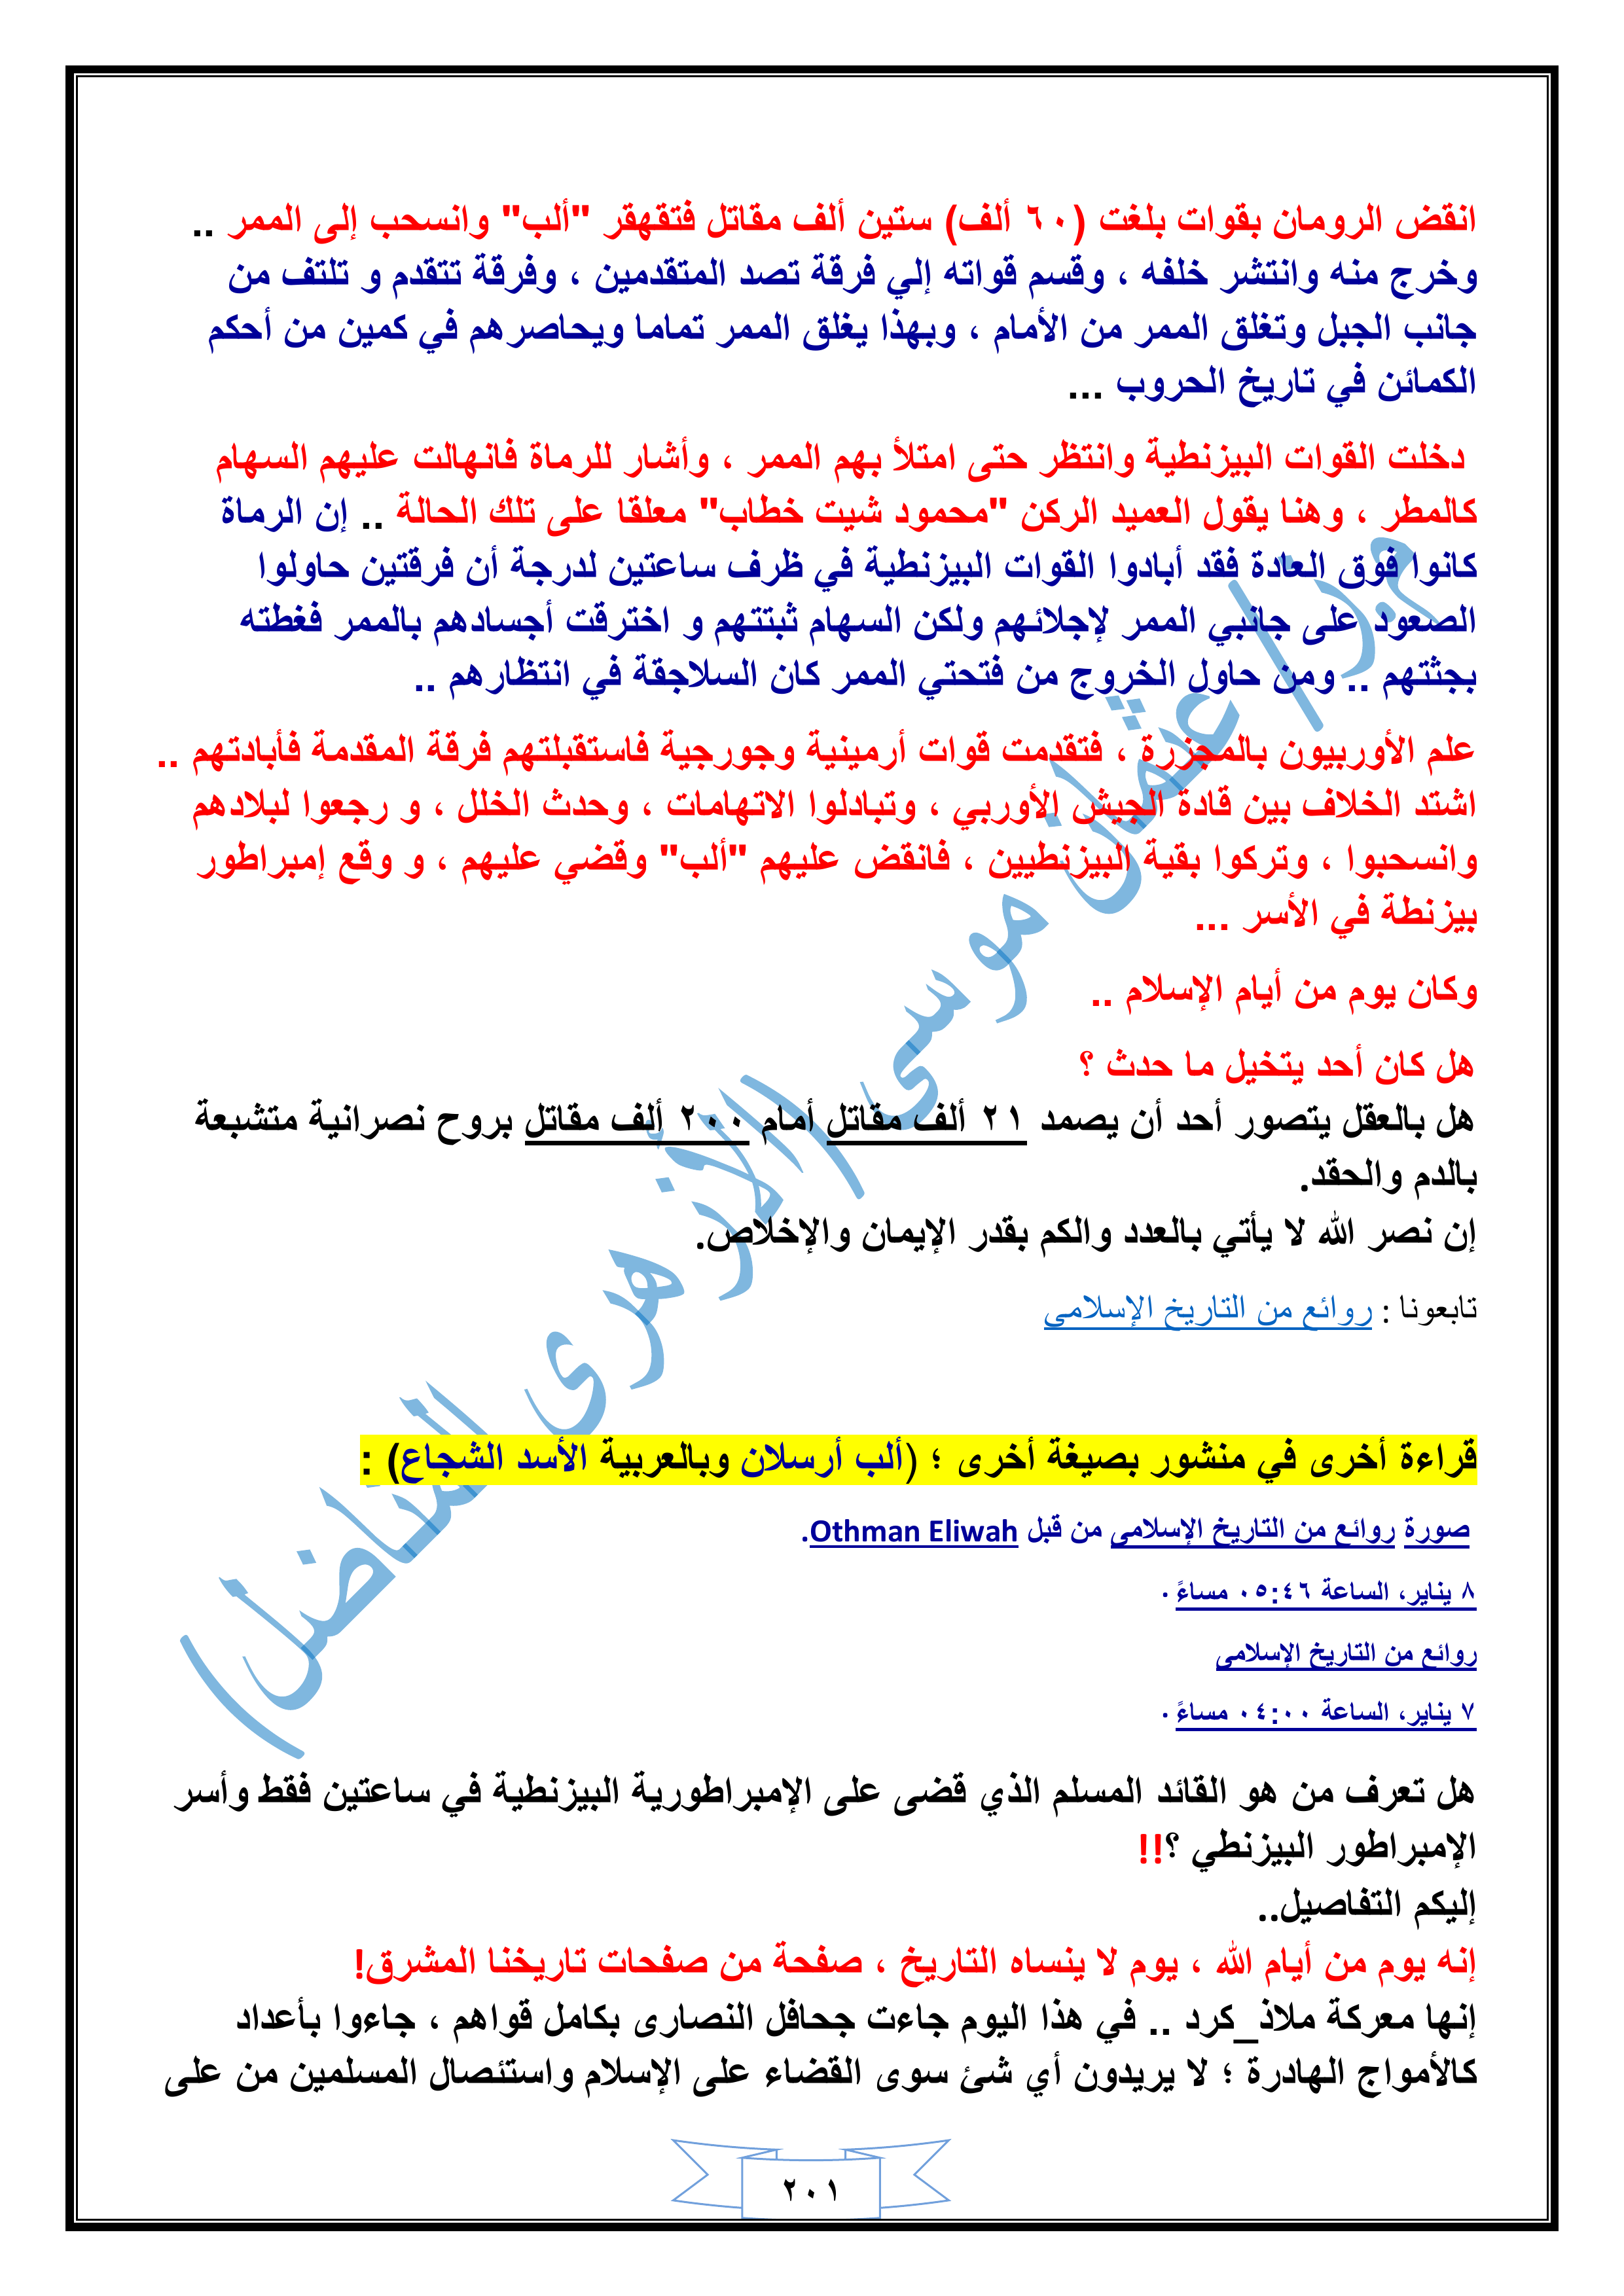 انقض الرومان بقوات بلغت (٦٠ ألف) ستين ألف مقاتل فتقهقر "ألب" وانسحب إلى الممر ..
وخرج منه وانتشر خلفه ، وقسم قواته إلي فرقة تصد المتقدمين ، وفرقة تتقدم و تلتف من
جانب الجبل وتغلق الممر من الأمام ، وبهذا يغلق الممر تماما ويحاصرهم في كمين من أحكم
الكمائن في تاريخ الحروب ...
دخلت القوات البيزنطية وانتظر حتى امتلأ بهم الممر ، وأشار للرماة فانهالت عليهم السهام
كالمطر ، وهنا يقول العميد الركن "محمود شيت خطاب" معلقا على تلك الحالة .. إن الرماة
كانوا فوق العادة فقد أبادوا القوات البيزنطية في ظرف ساعتين لدرجة أن فرقتين حاولوا
الصعود على جانبي الممر لإجلائهم ولكن السهام ثبتتهم و اخترقت أجسادهم بالممر فغطته
بجثتهم .. ومن حاول الخروج من فتحتي الممر كان السلاجقة في انتظارهم ..
علم الأوربيون بالمجزرة ، فتقدمت قوات أرمينية وجورجية فاستقبلتهم فرقة المقدمة فأبادتهم ..
اشتد الخلاف بين قادة الجيش الأوربي ، وتبادلوا الاتهامات ، وحدث الخلل ، و رجعوا لبلادهم
وانسحبوا ، وتركوا بقية البيزنطيين ، فانقض عليهم "ألب" وقضي عليهم ، و وقع إمبراطور
بيزنطة في الأسر ...
وكان يوم من أيام الإسلام ..
هل كان أحد يتخيل ما حدث ؟
هل بالعقل يتصور أحد أن يصمد ٢١ ألف مقاتل أمام ٢٠٠ ألف مقاتل بروح نصرانية متشبعة
بالدم والحقد.
إن نصر الله لا يأتي بالعدد والكم بقدر الإيمان والإخلاص.
تابعونا : روائع من التاريخ الإسلامى
قراءة أخرى في منشور بصيغة أخرى ؛ (ألب أرسلان وبالعربية الأسد الشجاع) :
صورة روائع من التاريخ الإسلامى من قبل Othman Eliwah.
٨ يناير، الساعة ٠٥:٤٦ مساءً ·
روائع من التاريخ الإسلامى
٧ يناير، الساعة ٠٤:٠٠ مساءً ·
هل تعرف من هو القائد المسلم الذي قضى على الإمبراطورية البيزنطية في ساعتين فقط وأسر
الإمبراطور البيزنطي ؟!!
إليكم التفاصيل..
إنه يوم من أيام الله ، يوم لا ينساه التاريخ ، صفحة من صفحات تاريخنا المشرق!
إنها معركة ملاذ_كرد .. في هذا اليوم جاءت جحافل النصارى بكامل قواهم ، جاءوا بأعداد
كالأمواج الهادرة ؛ لا يريدون أي شئ سوى القضاء على الإسلام واستئصال المسلمين من على
٢٠١
عثمان موسى (الأزهرى المناضل)